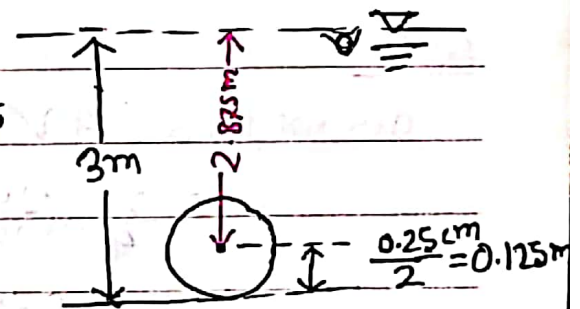 3m
2.875m
0.25cm/2 = 0.125m